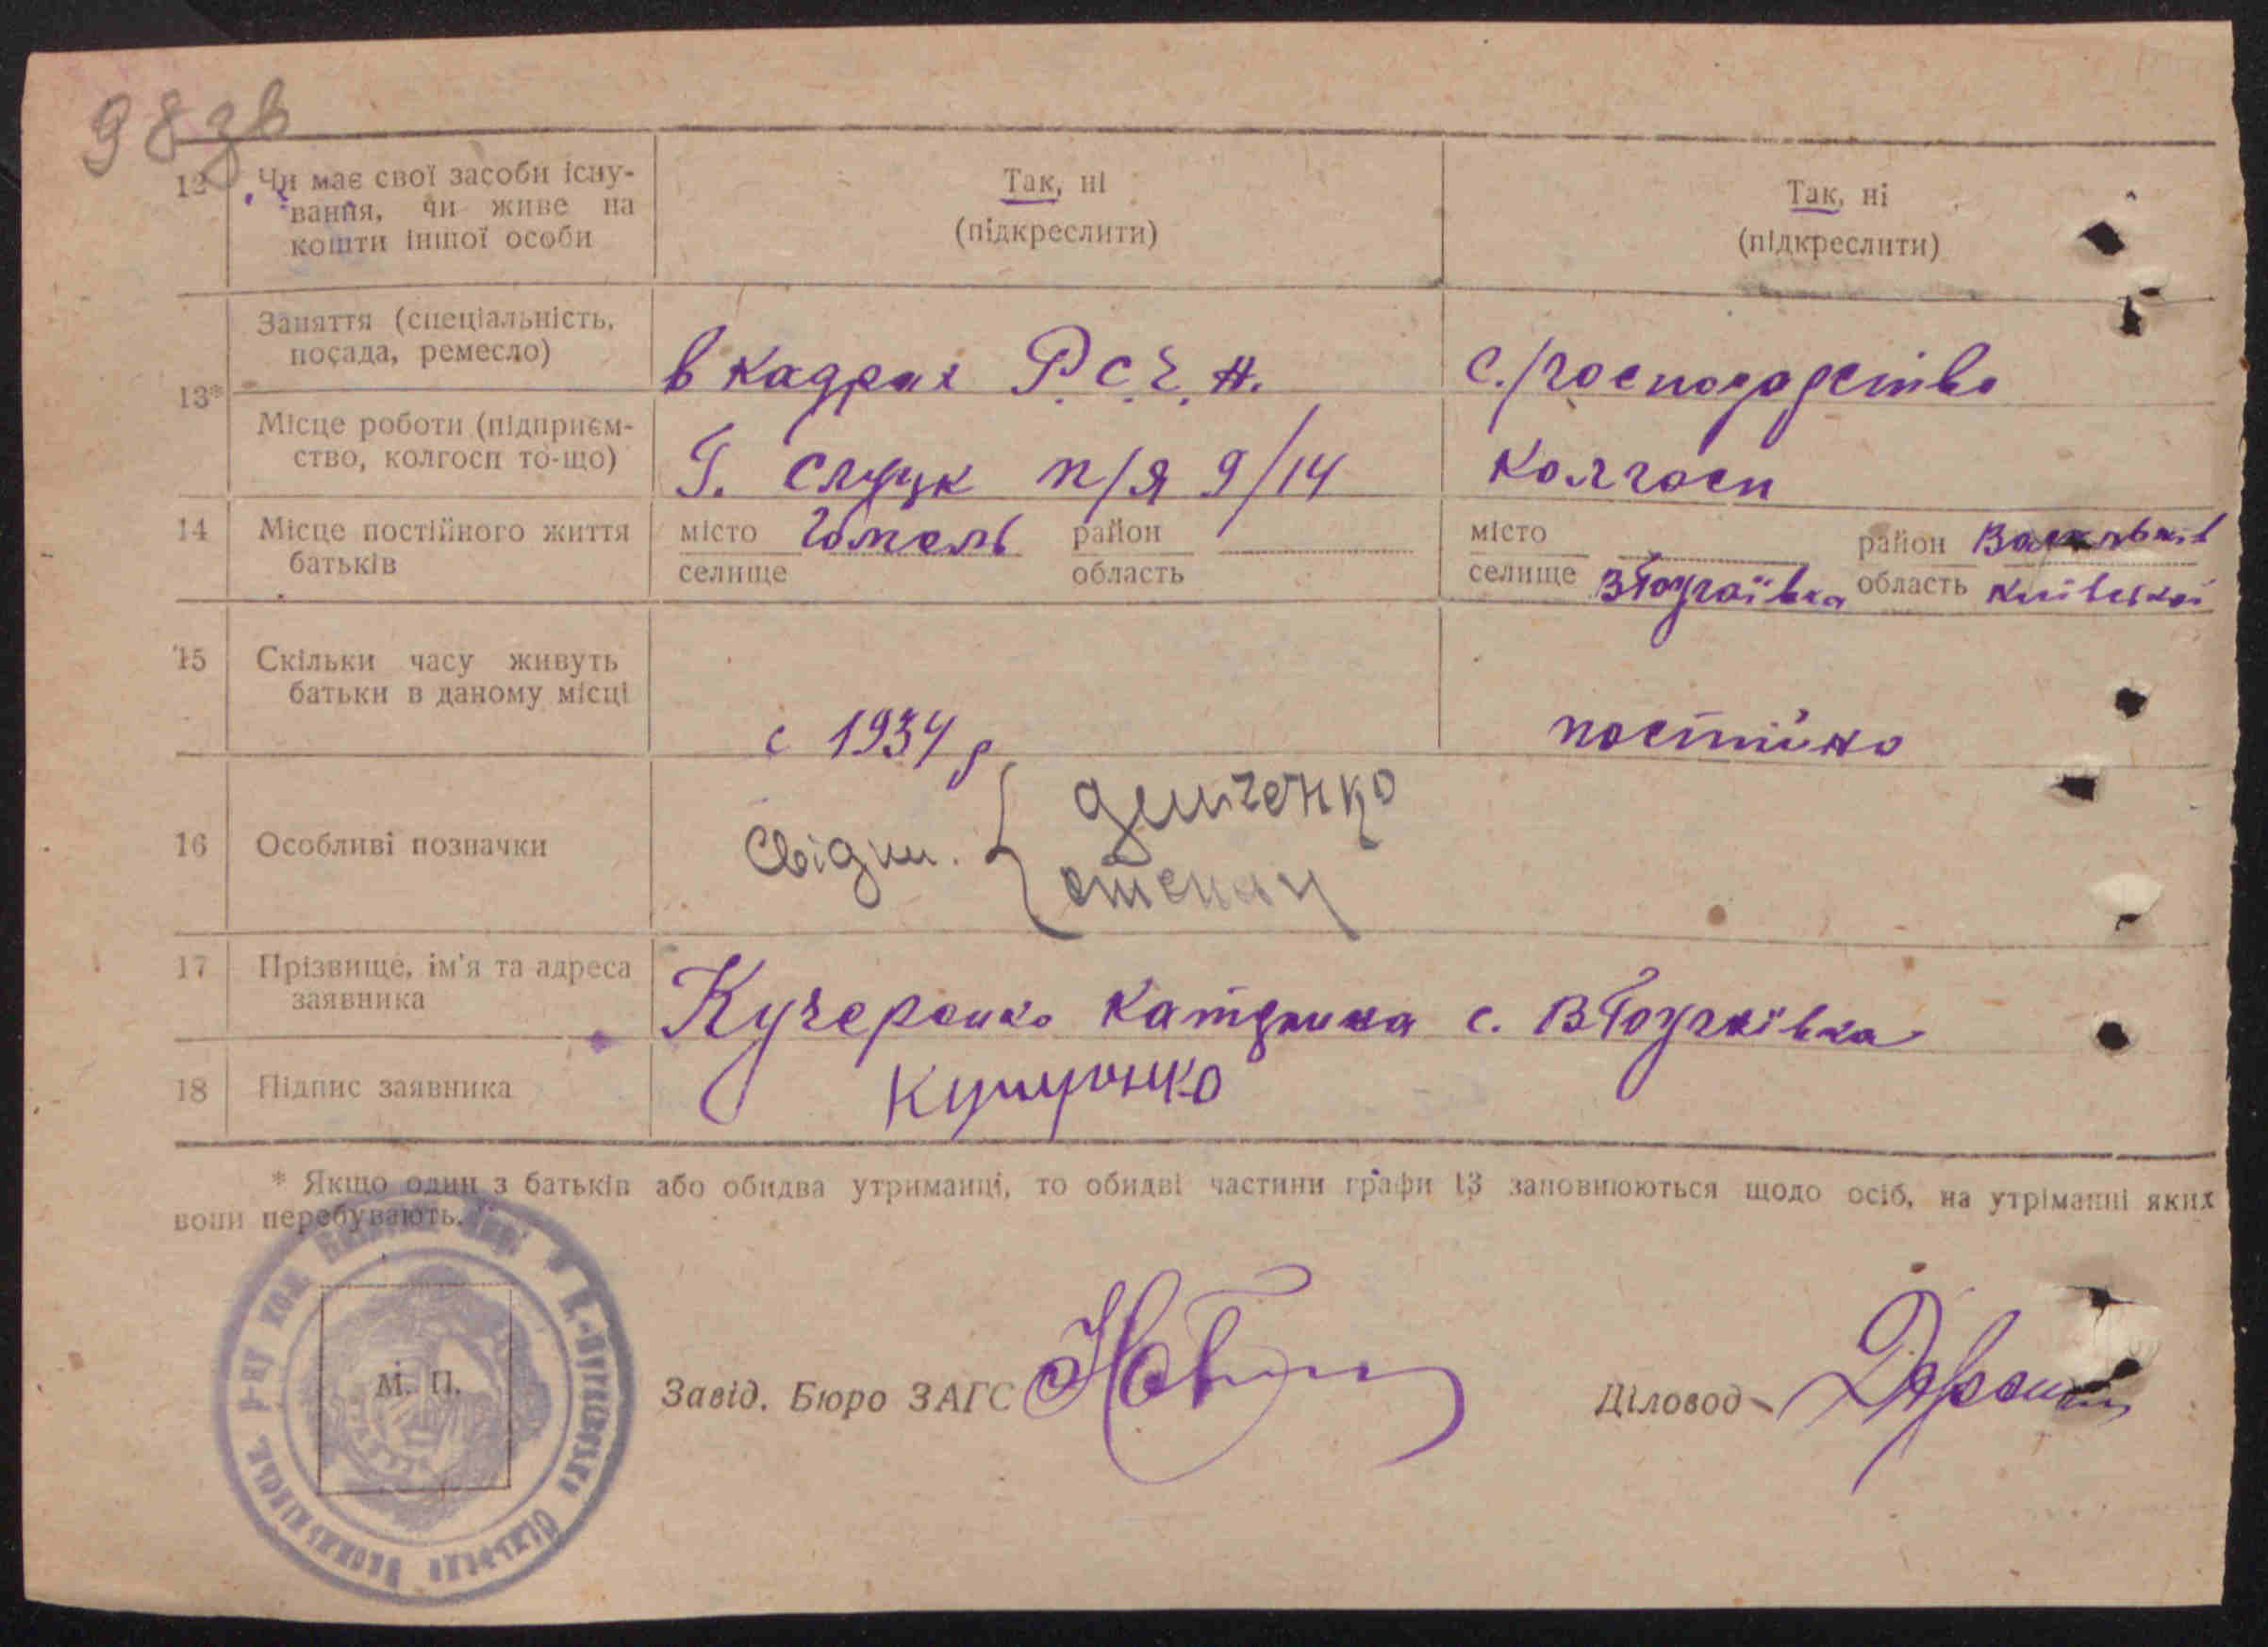 98зв
12 Чи має свої засоби існу-
вання, чи живе на
кошти іншої особи
Так, ні
(підкреслити)
Так, ні
(підкреслити)
13*
Заняття (спеціальність,
посада, ремесло)
в кадрах Р.С.Ч.А.
С./господарство
Місце роботи (підприєм-
ство, колгосп то-що)
Г. Слуцк п/я 9/14
Колгосп
14 Місце постійного життя
батьків
місто Гомель район
селище область
місто район Васильків
селище В Бугаївка область Київської
15 Скільки часу живуть
батьки в даному місці
с 1934 р
постійно
16 Особливі позначки
Свідки.
Демченко
Степан
17 Прізвище, ім'я та адреса
заявника
Кучеренко Катерина с. В Бугаївка
18 Підпис заявника
* Якщо один з батьків або обидва утриманці, то обидві частини графи 13 заповнюються щодо осіб, на утріманні яких
вони перебувають.
М. П.
Завід. Бюро ЗАГС
Діловод